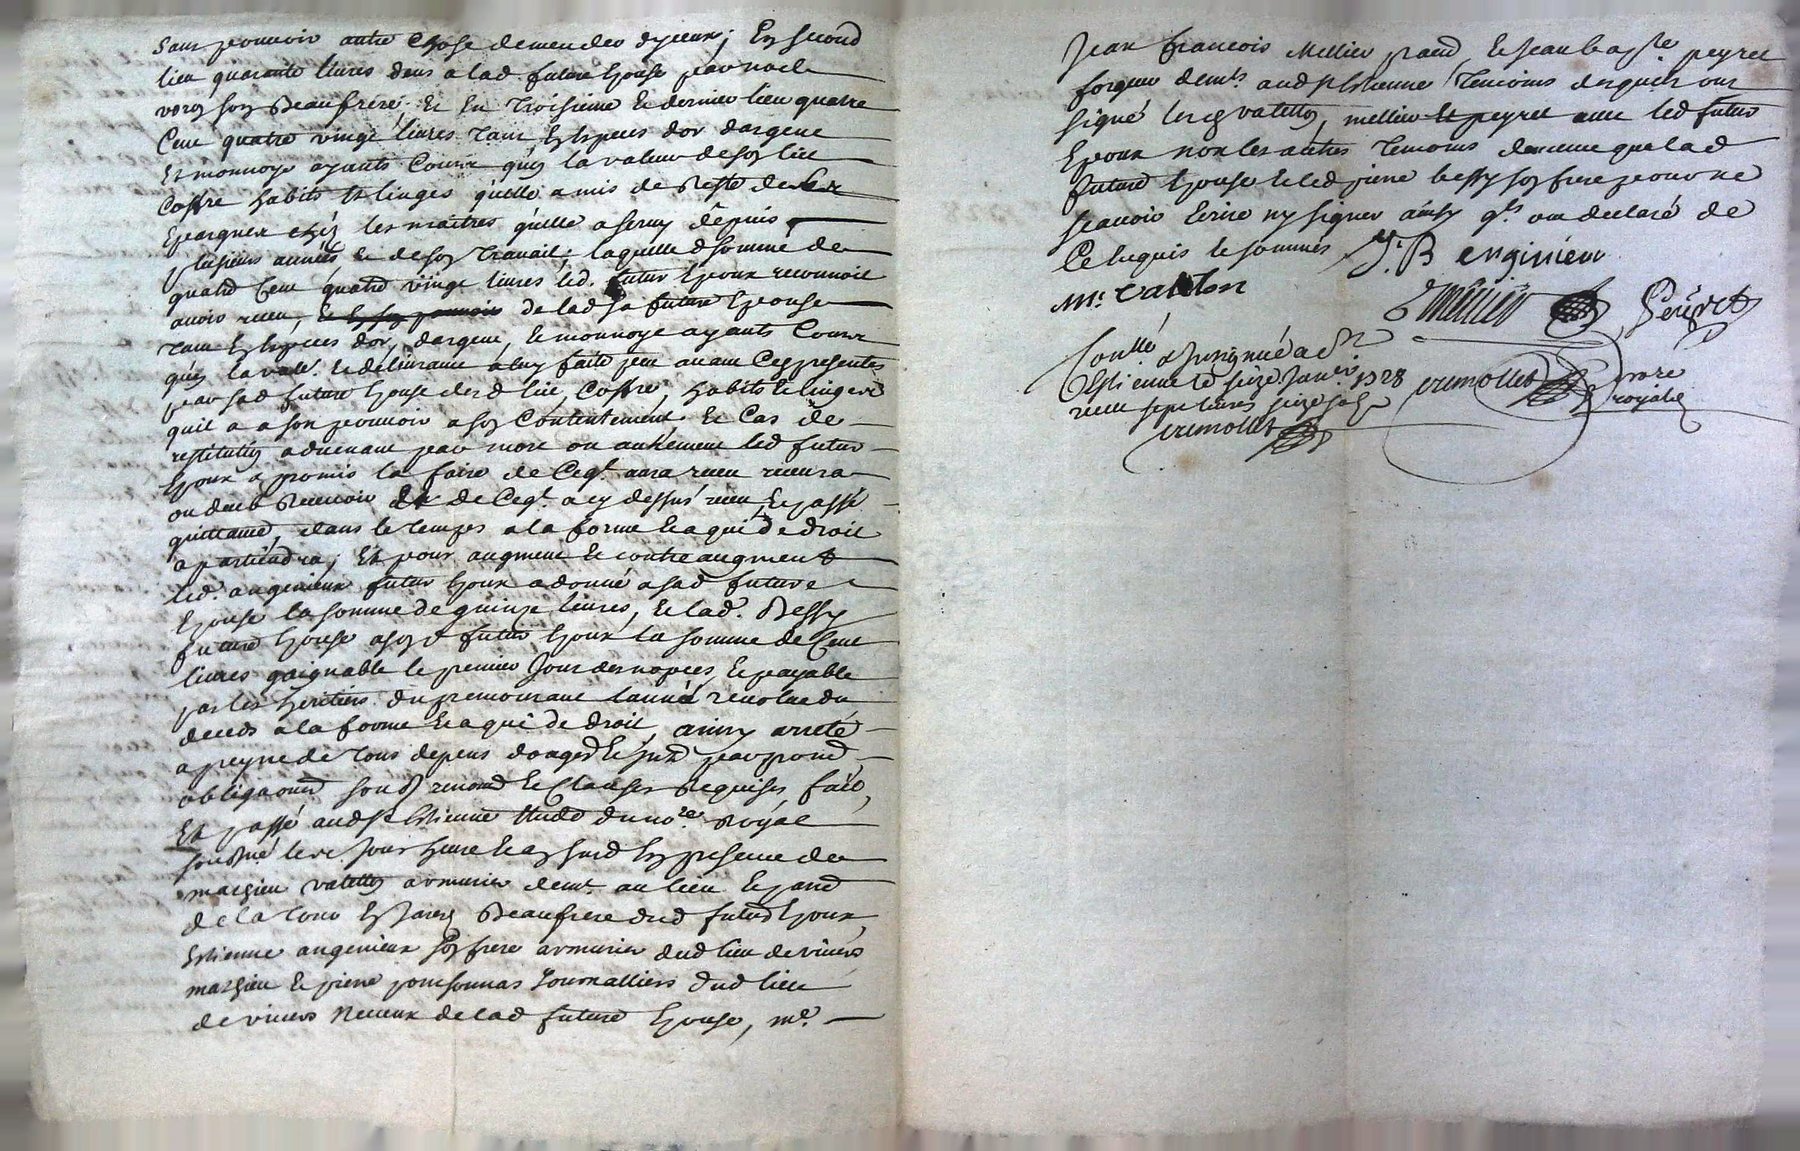 Sans pouvoir autre chose demender d'yceux; En second
lieu quarante livres deus a lad. future Epouse par noel
son Beaufrere. Et En Troisieme & dernier lieu quatre
Cent quatre vingt livres Tant En Especes d'or d'argent
Et monnoye ayants Cours qu'en la valeur de son lict
Coffre habits & linges qu'elle a mis de Reste
Epargner chés les maitres qu'elle a servy depuis
plusieurs années & de son Travail; laquelle d. somme de
quatre Cent quatre vingt livres led. futur Epoux reconnoit
avoir receu, de lad. sa future Epouse
Tant En Especes d'or, d'argent, & monnoye ayants Cours
qu'en la val.r & delivrance a luy faite peu avant Ces presentes
par sad. future Epouse desd. lict, Coffre, habits & linges
qu'il a a son pouvoir a son Contentement, Et Cas de
restitution advenant par mort ou autrement led. futur
Epoux a promis la faire de Ceq.l aura receu recevra
ou deub Recevoir Et de Ceq.l a cy dessus receu, Et passé
quittance, dans le temps a la forme & a qui de droit
apartiendra; Et pour augment & contre augment
led. angenieux futur Epoux a donné a sad. future
Epouse la somme de quinze livres, & lad. Bessy
future Epouse a son d. futur Epoux la somme de Cent
livres gaignable le premier Jour des nopces, & payable
par les heritiers du premourant l'année revolue du
deceds a la forme & a qui de droit, ainsy arreté
a peyne de tous depens
obligaons soub.d renond & Clauses Requises fait,
Et passé aud. St Estienne Etude du no.re Royal
soub.né le Jour En presence de
mathieu valetton armurier dem.t au lieu
de la Tour En Jarez Beaufrere dud. futur Epoux
Estienne angenieux son frere armurier dud. lieu
mathieu & pierre ponsonnas Journalliers dud. lieu
Neveux de lad. future Epouse, m.e
Jean francois Mellier prat.n & Jean bap.te peyret
forgeur dem.ts aud. St Etienne Temoins desquels ont
signé lesd. valetton, mellier & peyret avec led. futur
Epoux non les autres Temoins de meme que lad.
future Epouse & led. pierre bessy son frere pour ne
scavoir Ecrire ny signer ainsy q.ls ont declaré de
Ce Enquis & sommés J. B enginieu
M. Valeton
Mellier Peiret
Con.llé & Insignué a St
Estienne le seize Janv.er 1728
receu sept livres seize sols
crimollet
crimollet no.re
royal